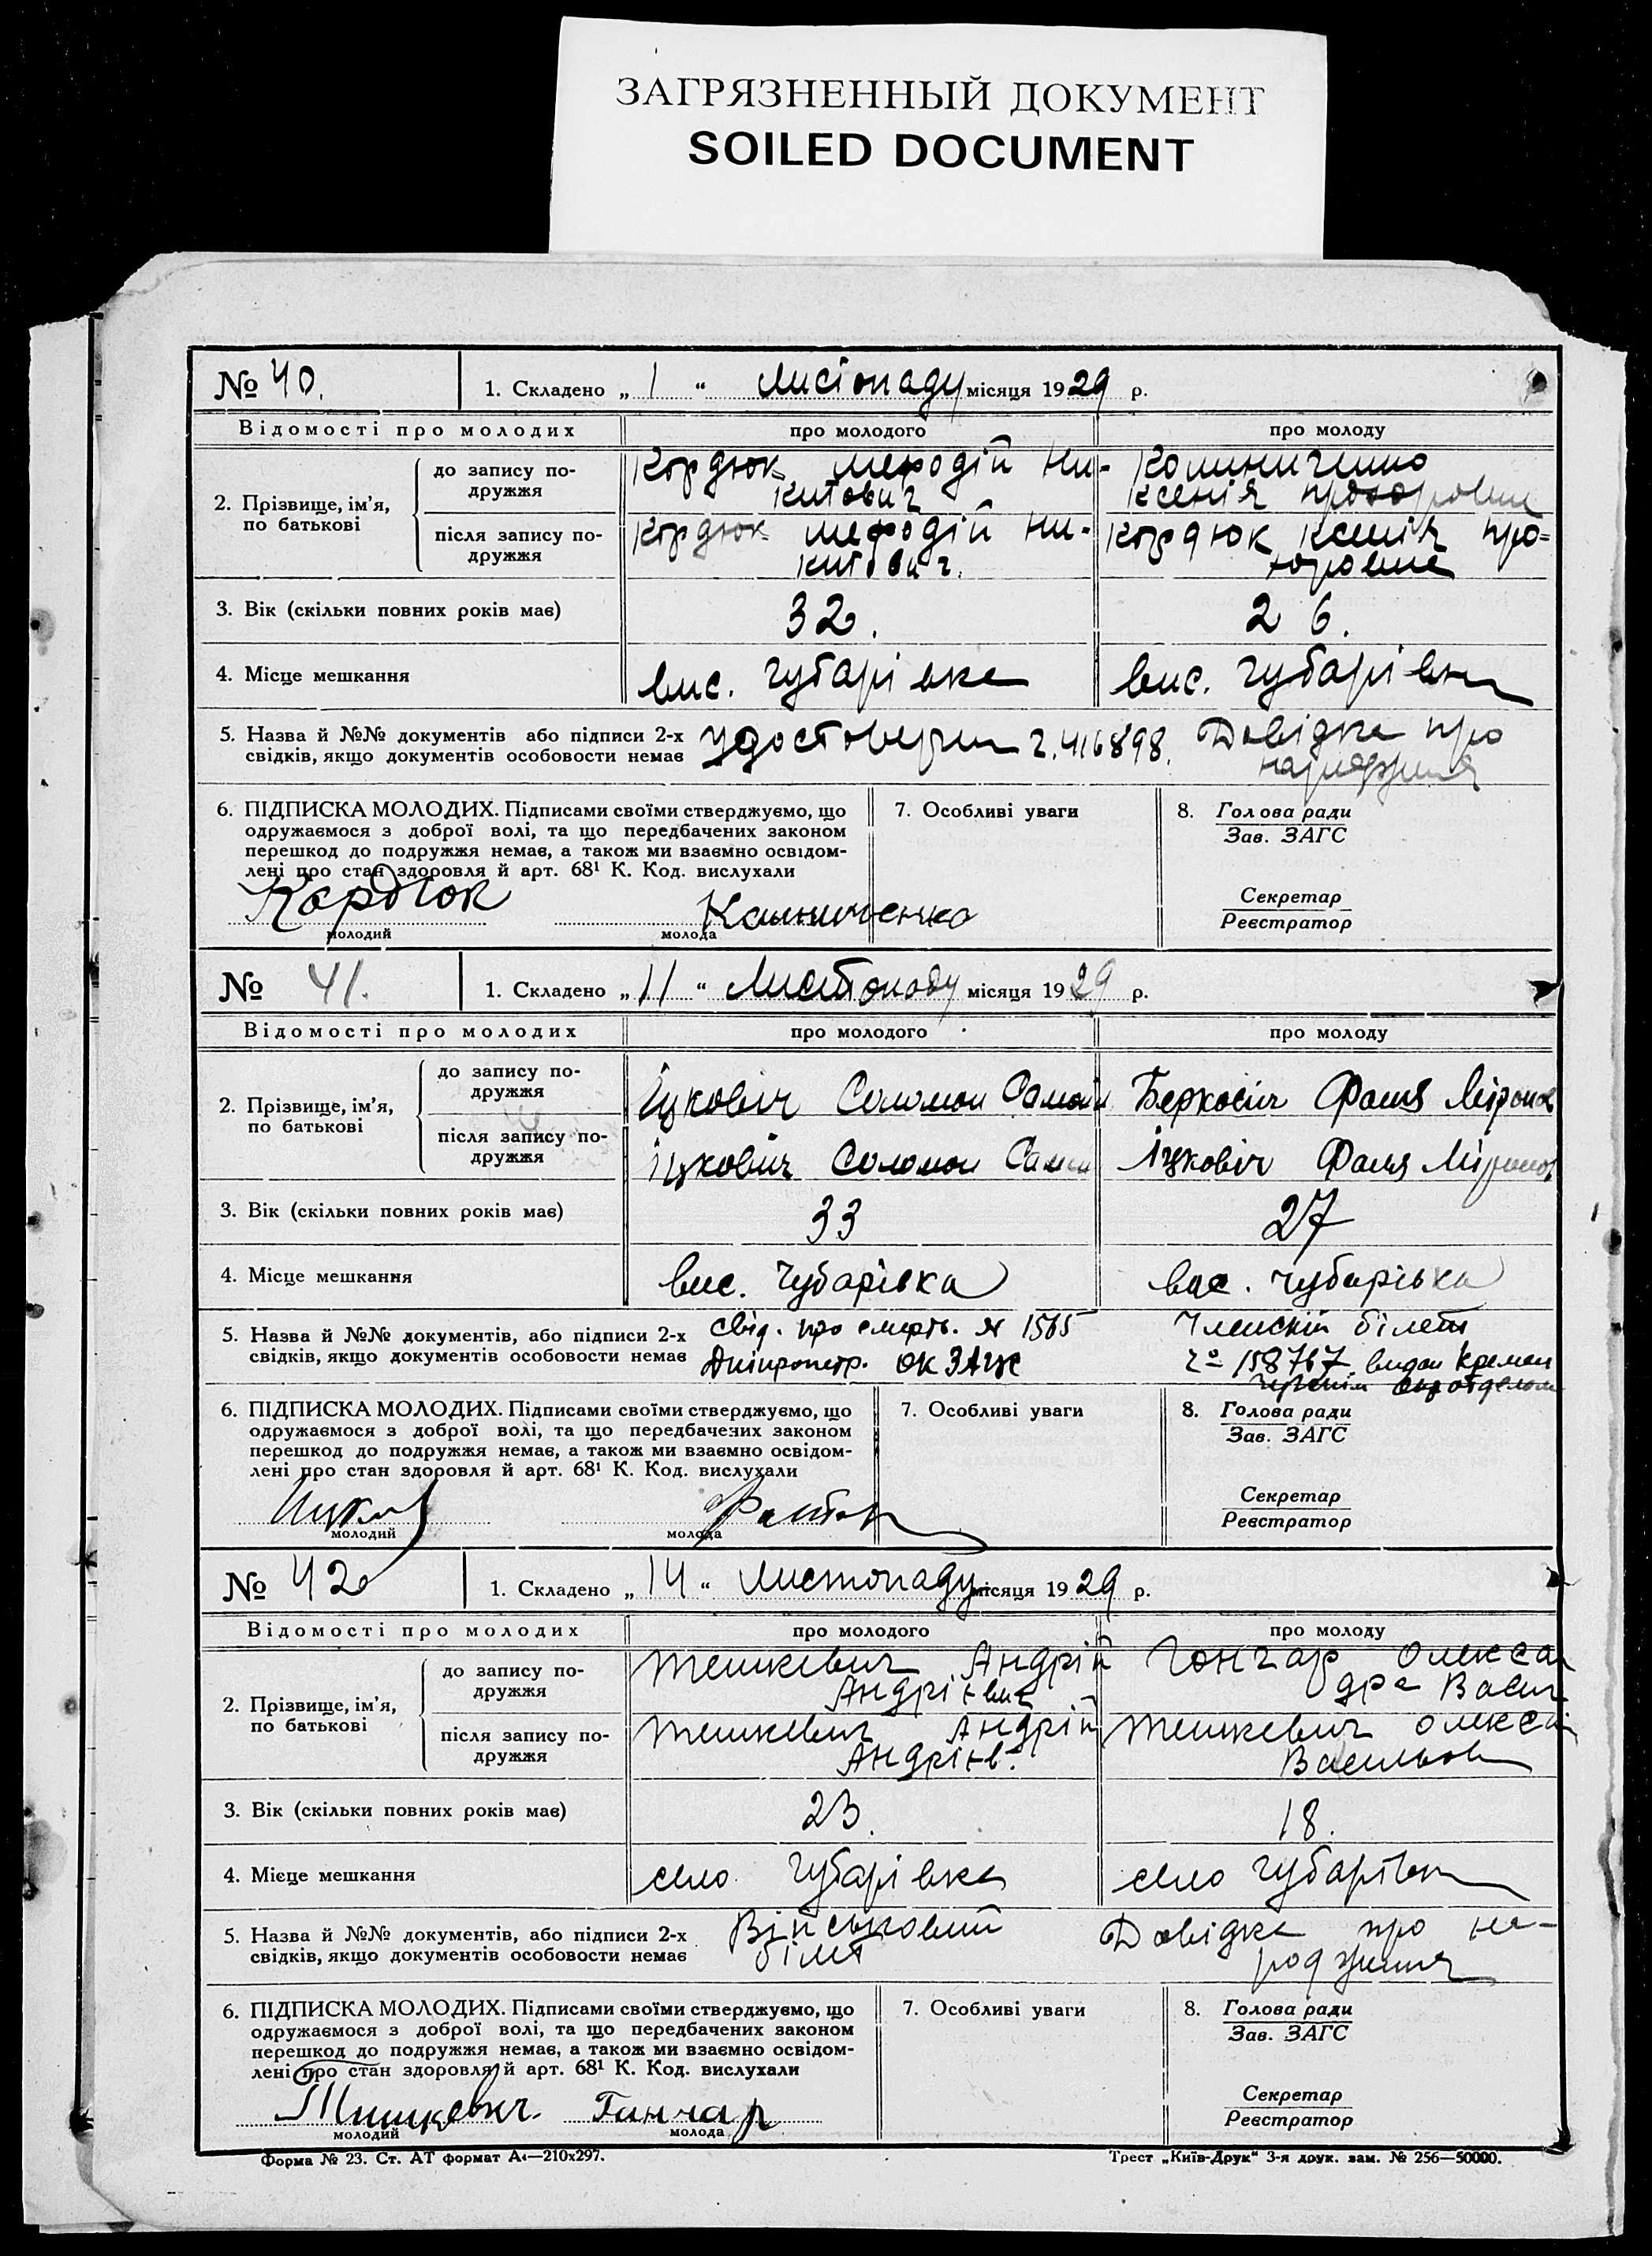 ЗАГРЯЗНЕННЫЙ ДОКУМЕНТ
SOILED DOCUMENT
№ 40. 1. Складено „ 1 “ Листопаду місяця 1929 р.
Відомості про молодих про молодого про молоду
2. Прізвище, ім'я, по батькові
до запису подружжя
Кордюк Мефодій Ни-
китович
Ксенія
після запису по-
дружжя
Кордюк Мефодій Ни-
китович.
Кордюк Ксенія про-
3. Вік (скільки повних років має) 32. 26.
4. Місце мешкання вис. Чубарівка вис. Чубарівка
5. Назва й №№ документів або підписи 2-х
свідків, якщо документів особовости немає
ч. 416898. Довідка про
6. ПІДПИСКА МОЛОДИХ. Підписами своїми стверджуємо, що
одружаємося з доброї волі, та що передбачених законом
перешкод до подружжя немає, а також ми взаємно освідом-
лені про стан здоровля й арт. 68¹ К. Код. вислухали
Кордюк
молодий молода
7. Особливі уваги
8. Голова ради
Зав. ЗАГС
Секретар
Реєстратор
№ 41. 1. Складено „ 11 “ Листопаду місяця 1929 р.
Відомості про молодих про молодого про молоду
2. Прізвище, ім'я,
по батькові
до запису по-
дружжя
Іцковіч Соломон Беркович Фаня
після запису по-
дружжя
Іцковіч Соломон Іцковіч Фаня
3. Вік (скільки повних років має) 33 27
4. Місце мешкання вис. Чубарівка вис. Чубарівка
5. Назва й №№ документів, або підписи 2-х
свідків, якщо документів особовости немає
Свід. про смерть. № 1565
Дніпропетр. ОК ЗАГС
Членскій білет
158767 видан Кремен
6. ПІДПИСКА МОЛОДИХ. Підписами своїми стверджуємо, що
одружаємося з доброї волі, та що передбачених законом
перешкод до подружжя немає, а також ми взаємно освідом-
лені про стан здоровля й арт. 68¹ К. Код. вислухали
молодий молода
7. Особливі уваги
8. Голова ради
Зав. ЗАГС
Секретар
Реєстратор
№ 42 1. Складено „ 14 “ Листопаду місяця 1929 р.
Відомості про молодих про молодого про молоду
2. Прізвище, ім'я,
по батькові
до запису по-
дружжя
Тешкевич Андрій
Гончар Олексан
дра Васил
після запису по-
дружжя
Тешкевич Андрій
Андріїв.
Тешкевич
Васильов
3. Вік (скільки повних років має) 23. 18.
4. Місце мешкання село Чубарівка село Чубарівка
5. Назва й №№ документів, або підписи 2-х
свідків, якщо документів особовости немає
Військовий
білет
Довідка про на-
родження
6. ПІДПИСКА МОЛОДИХ. Підписами своїми стверджуємо, що
одружаємося з доброї волі, та що передбачених законом
перешкод до подружжя немає, а також ми взаємно освідом-
лені про стан здоровля й арт. 68¹ К. Код. вислухали
Ганчар
молодий молода
7. Особливі уваги
8. Голова ради
Зав. ЗАГС
Секретар
Реєстратор
Форма № 23. Ст. АТ формат А₄—210х297.
Трест „Київ-Друк“ 3-я друк. зам. № 256—50000.